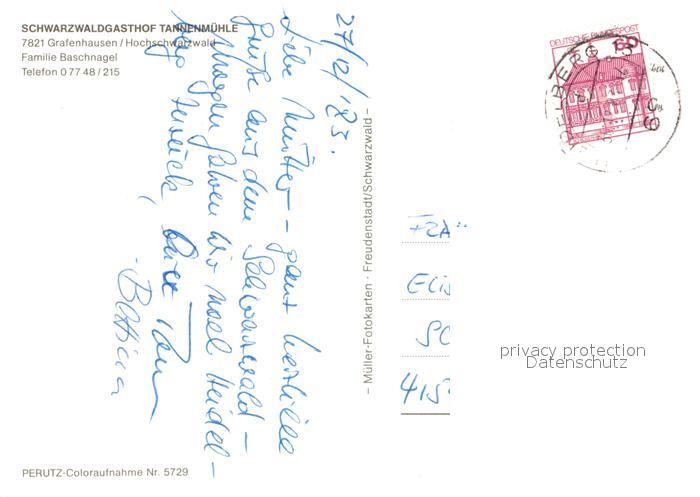 SCHWARZWALDGASTHOF TANNENMÜHLE
7821 Grafenhausen / Hochschwarzwald
Familie Baschnagel
Telefon 0 77 48 / 215
27/12/'83.
Liebe Mutter – ganz herzliche
Grüße aus dem Schwarzwald –
Morgen fahren wir nach Heidel-
zurück,
Bettina
– Müller-Fotokarten · Freudenstadt/Schwarzwald –
DEUTSCHE BUNDESPOST
60
ELIS
415
privacy protection
Datenschutz
PERUTZ-Coloraufnahme Nr. 5729